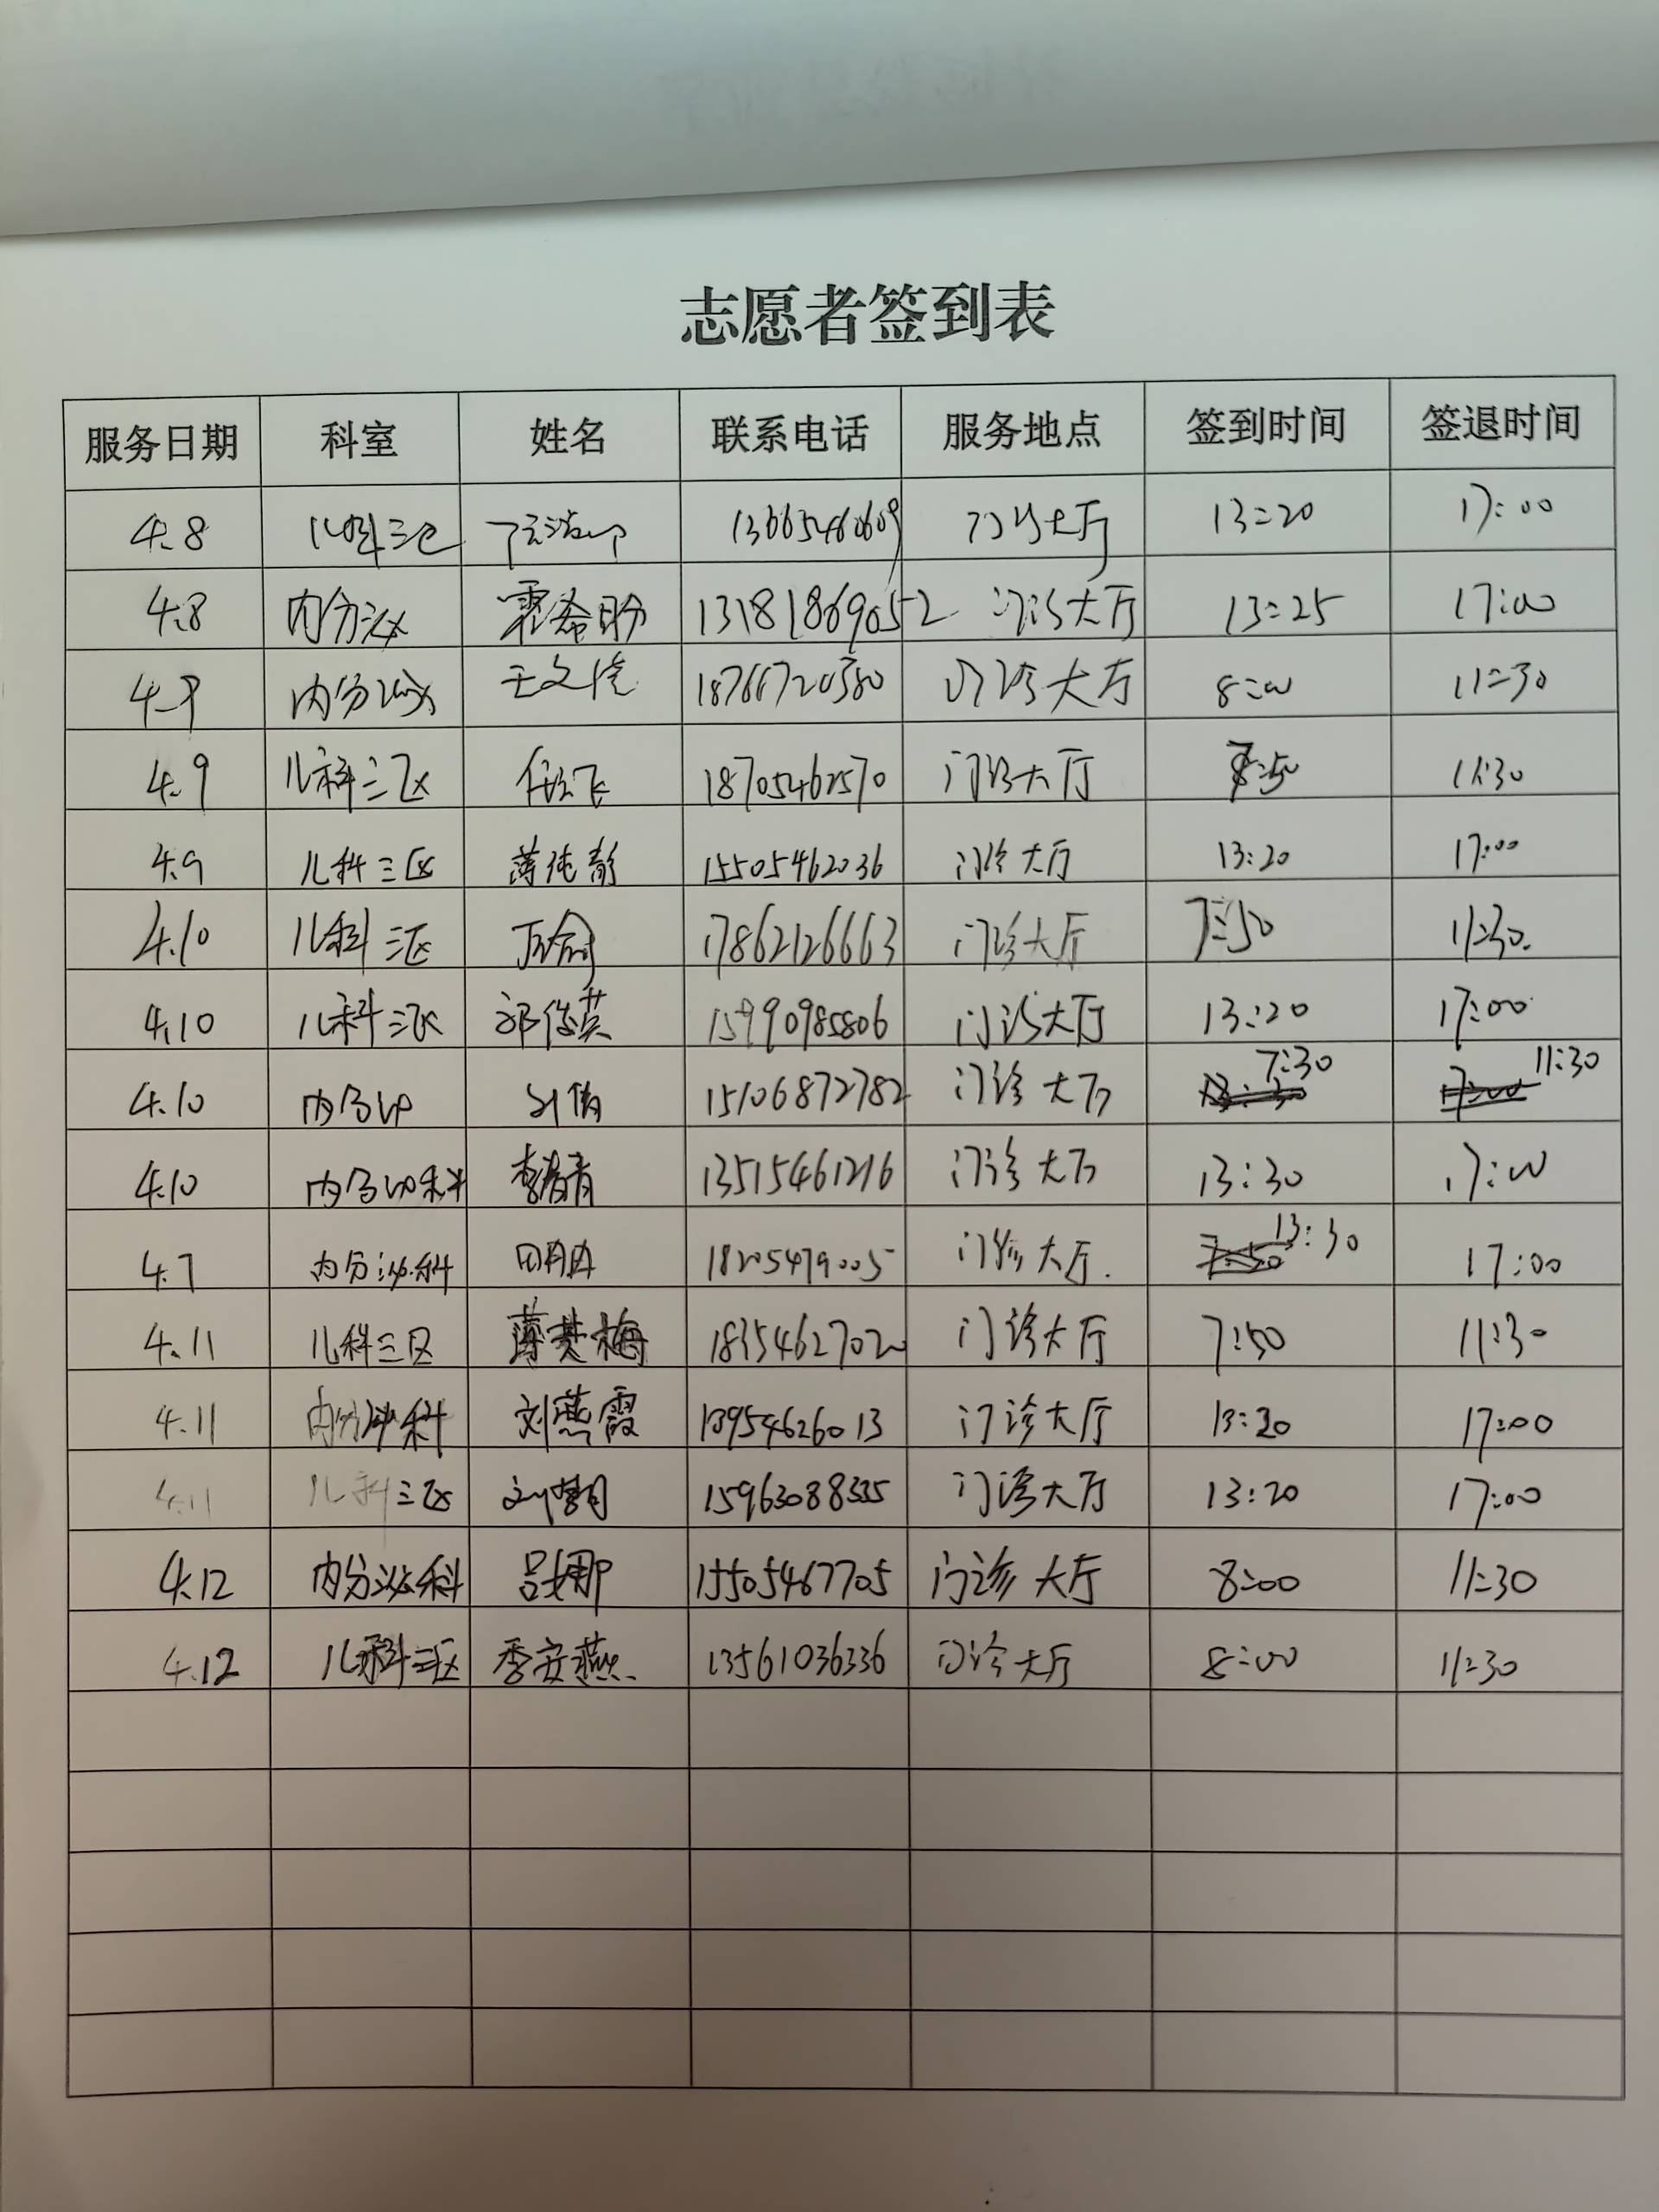 志愿者签到表
服务日期 科室 姓名 联系电话 服务地点 签到时间 签退时间
4.8 儿科三区 13665460609 门诊大厅 13:20 17:00
4.8 内分泌 霍希盼 13181869052 门诊大厅 13:25 17:00
4.9 内分泌 王文 18766720380 门诊大厅 8:00 11:30
4.9 儿科三区 任 飞 18705462570 门诊大厅 7:50 11:30
4.9 儿科三区 薄纯静 15505462036 门诊大厅 13:20 17:00
4.10 儿科三区 17862126663 门诊大厅 7:50 11:30
4.10 儿科三区 郭俊英 15990985806 门诊大厅 13:20 17:00
4.10 内分泌 刘倩 15106872782 门诊大厅 7:30 11:30
4.10 内分泌科 李春青 13515461216 门诊大厅 13:30 17:00
4.7 内分泌科 田 18205479005 门诊大厅. 13:30 17:00
4.11 儿科三区 薄其梅 18354627020 门诊大厅 7:50 11:30
4.11 内分泌科 刘燕霞 13954626013 门诊大厅 13:20 17:00
4.11 儿科三区 刘 15963088335 门诊大厅 13:20 17:00
4.12 内分泌科 吕娜 15505467705 门诊大厅 8:00 11:30
4.12 儿科三区 李安燕 13561036336 门诊大厅 8:00 11:30